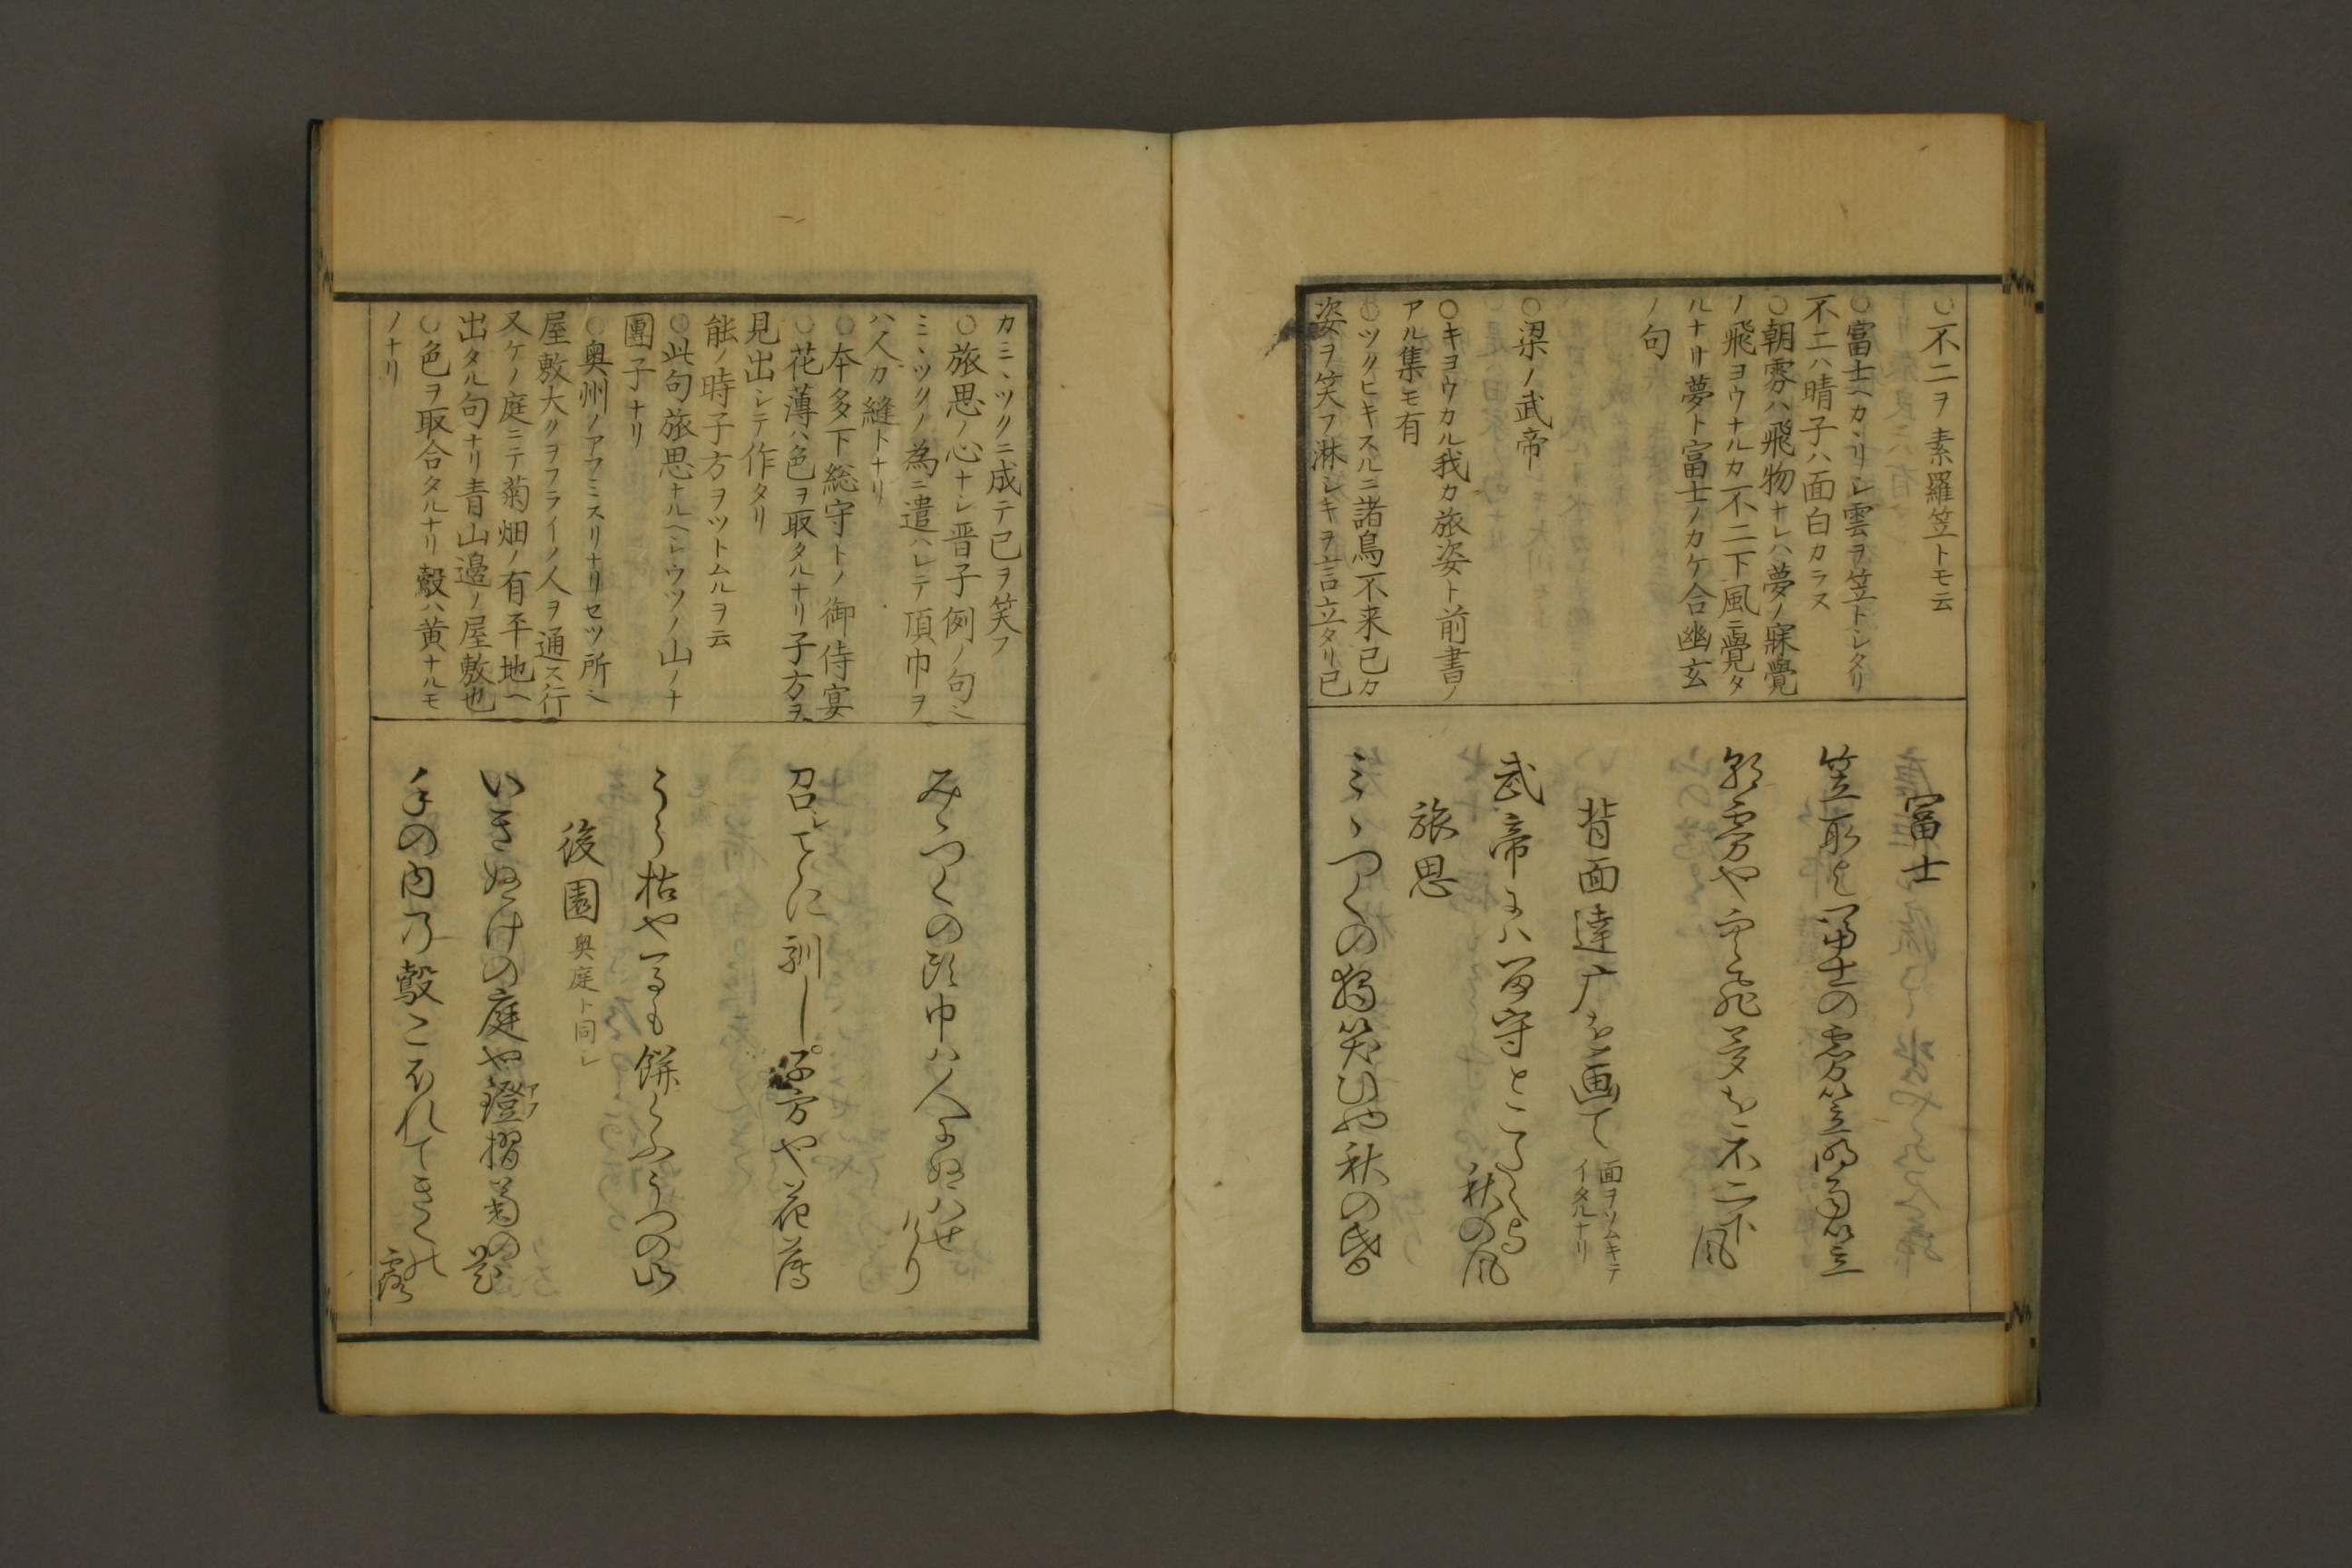 ○不二ヲ素羅笠トモ云
○富士ヘカヽリシ雲ヲ笠トシタリ
不二ハ晴子ハ面白カラス
○朝雰ハ飛物ナレハ夢ノ寐覺
ノ飛ヨウナルカ不二下風ニ覺タ
ルナリ夢ト富士ノカケ合幽玄
ノ句
○梁ノ武帝
○キヨウカル我カ旅姿ト前書ノ
アル集モ有
○ツクヒキスルニ諸鳥不来已カ
姿ヲ笑フ淋シキヲ言立タリ已
富士
笠取よ富士の雰笠時雨笠
朝雰や空飛夢を不二下風
背面達广を画て 面ヲソムキテイタルナリ
武帝には留守とこたへよ秋の風
旅思
みゝつくの独笑ひや秋の昏
カミヽツクニ成テ已ヲ笑フ
○旅思ノ心ナシ晋子例ノ句ミ
ミヽツクノ為ニ遣ハレテ頂巾ヲ
ハ人カ縫トナリ
○本多下総守トノ御侍宴
○花薄ハ色ヲ取タルナリ子方ヲ
見出シテ作タリ
能ノ時子方ヲツトムルヲ云
○此句旅思ナルヘシウツノ山ノナ
團子ナリ
○奥州ノアフミスリナリセツ所ミ
屋敷大クヲフライノ人ヲ通ス行
又ケノ庭ニテ菊畑ノ有平地ヘ
出タル句ナリ青山邉ノ屋敷也
○色ヲ取合タルナリ糓ハ黄ナルモ
ノナリ
みゝつくの頭巾は人にぬはせけり
召レてに訓し子方や花薄
うら枯や馬も餅くふうつの山
後園 奥庭ト同シ
いきぬけの庭や鐙摺菊の花
手の内の糓こほれてきくの露